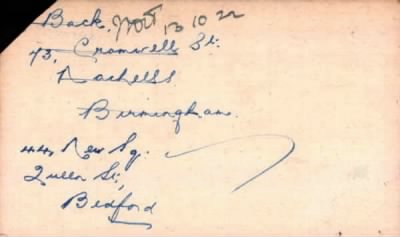 Back. 13.10.22
73. Cromwell St.
Nachells
Birmingham.
44, New Sq.
Queen St.,
Bedford